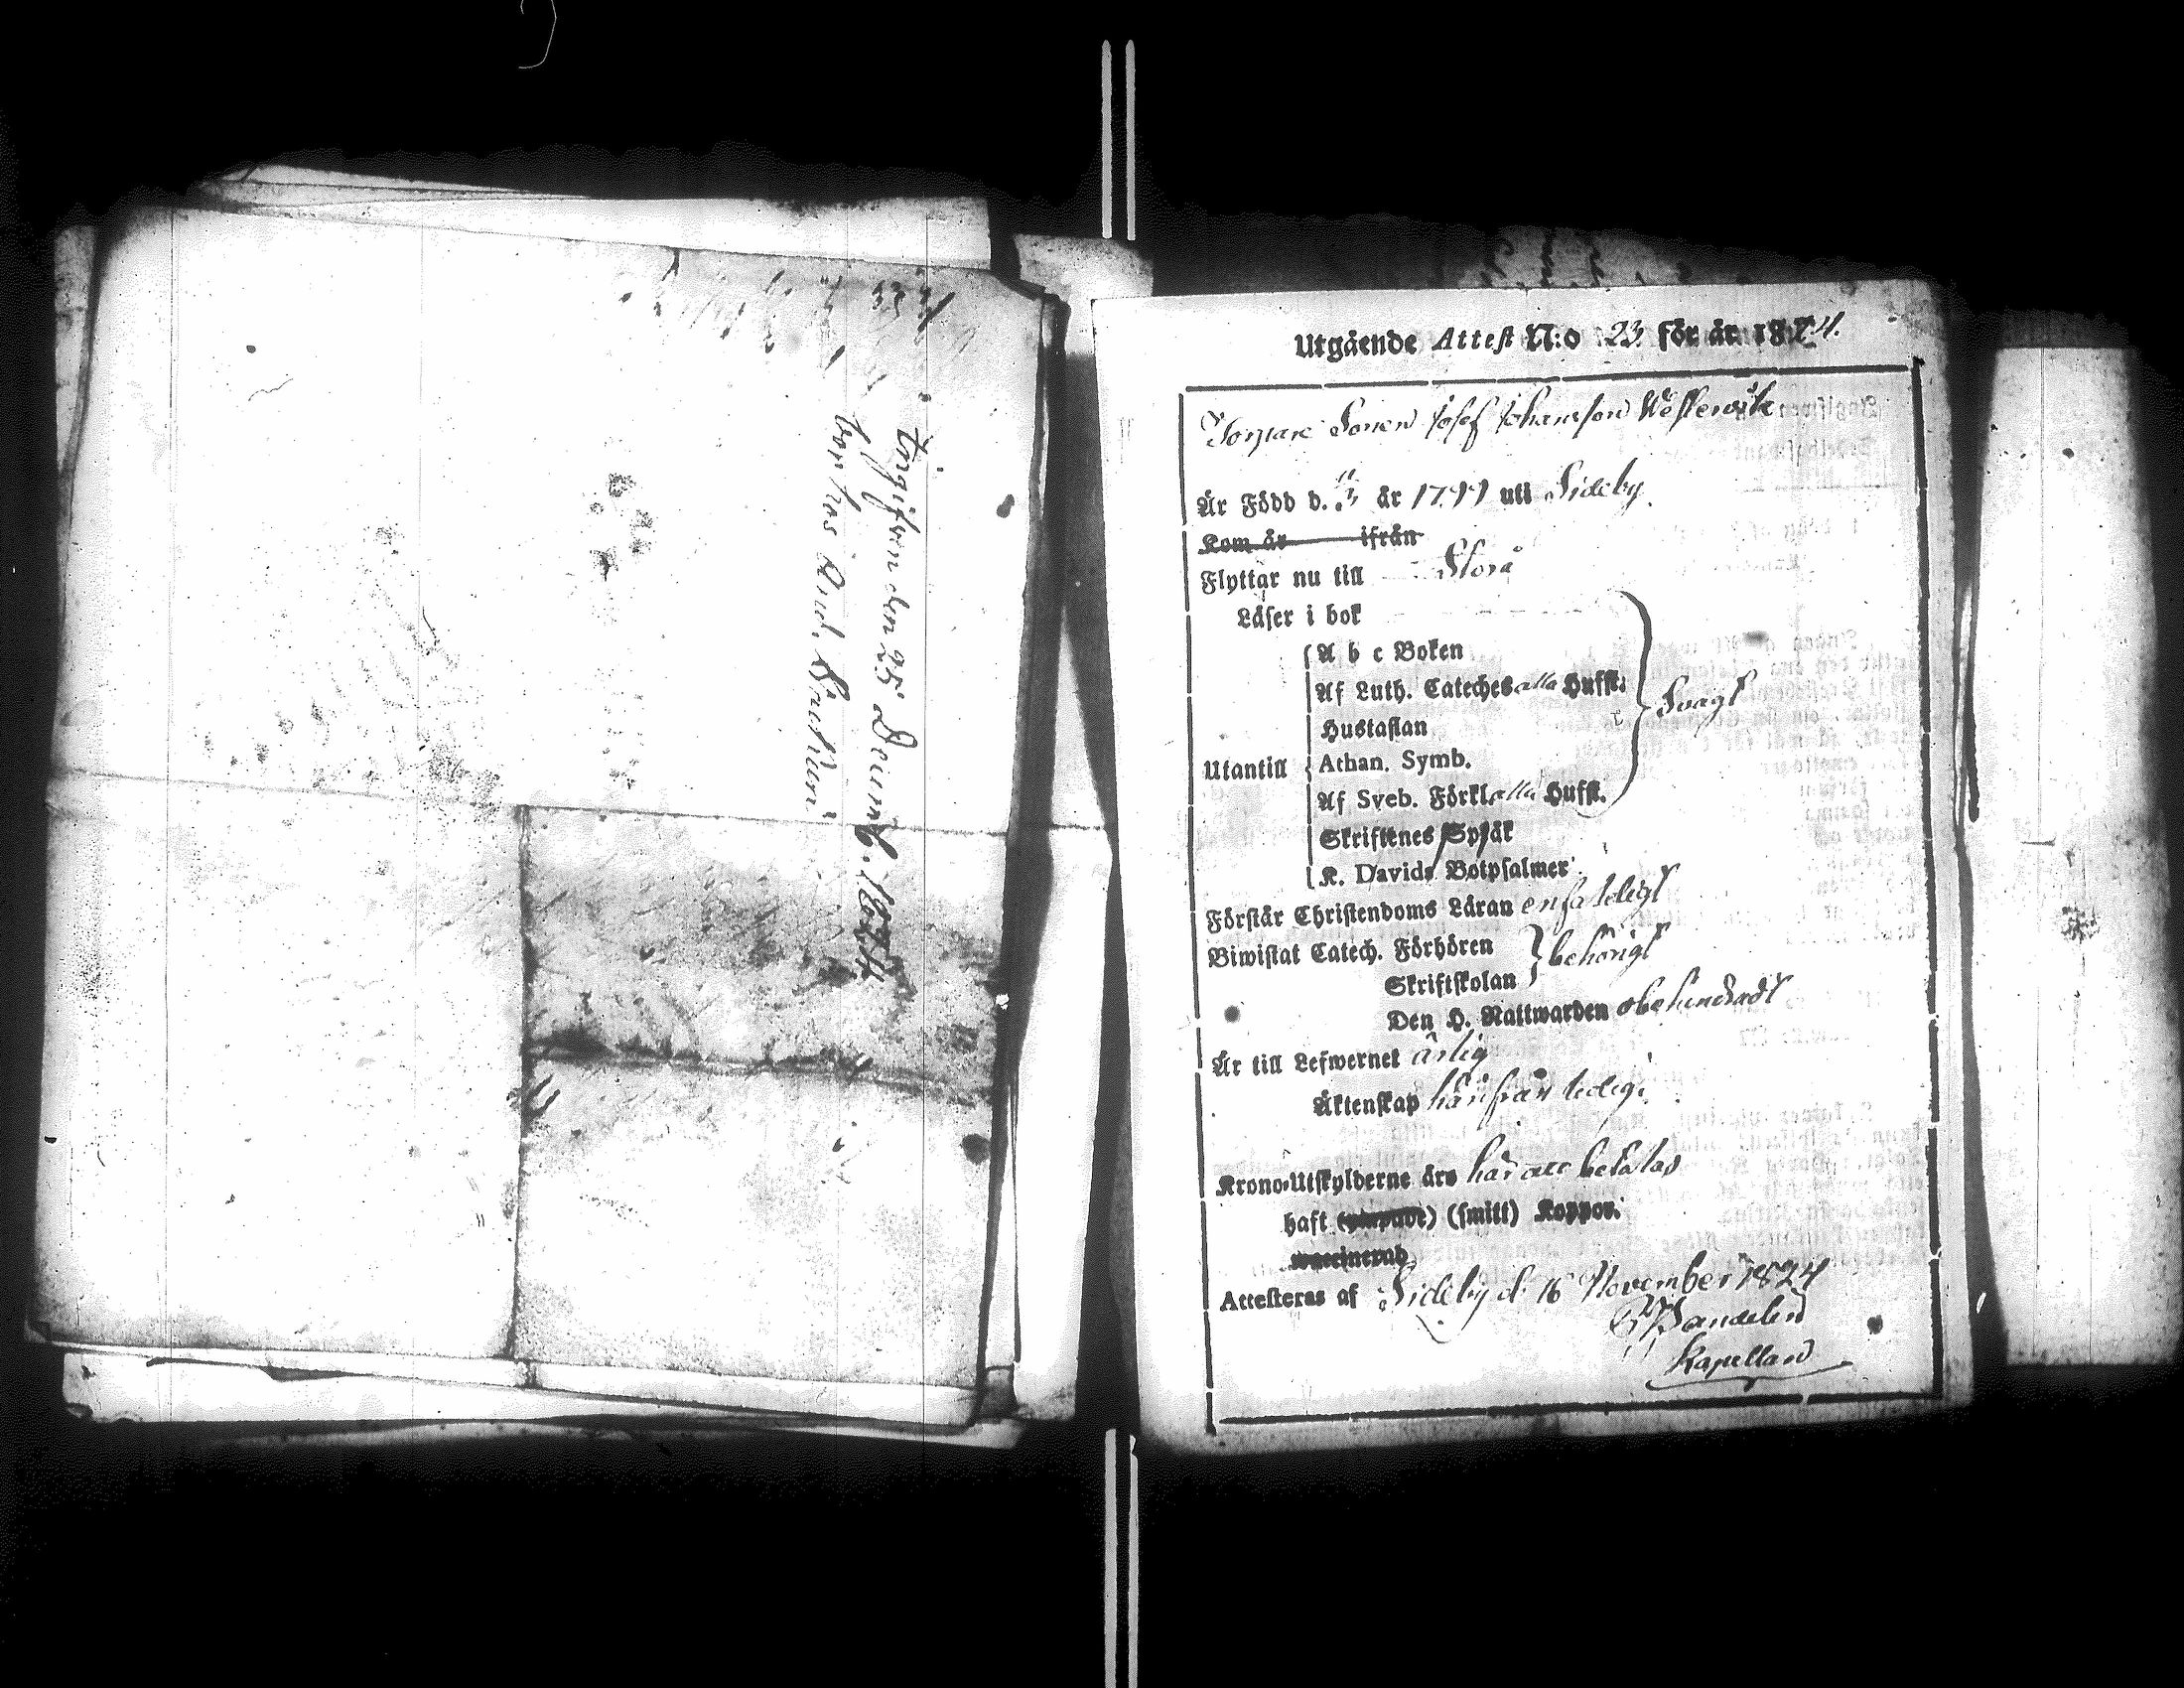 Ingifven den 25 Decemb. 1824
bor hos
Utgående Attest N:o 23 för år 1824.
Torpare Sonen Josef Johansson Westerwik
Är Född d. år 1799 uti Sideby.
Kom år ifrån
Flyttar nu till Storå
Läser i bok
A b c Boken
Af Luth. Cateches alla Hufst.
Hustaflan
Utantill Athan. Symb.
Svagt
Af Sveb. Förkl. alla Hufst.
Skriftenes Språk
K. Davids Botpsalmer
Förstår Christendoms Läran enfaldigt
Biwistat Catech. Förhören
Skriftskolan
behörigt
Den H. Nattwarden obehindradt
Är till Lefwernet ärlig
Äktenskap härifrån ledig.
Krono-Utskylderne äro här att betalas
haft (smitt) Koppor.
waccinerad
Attesteras af Sideby d. 16 November 1824
Kapellan